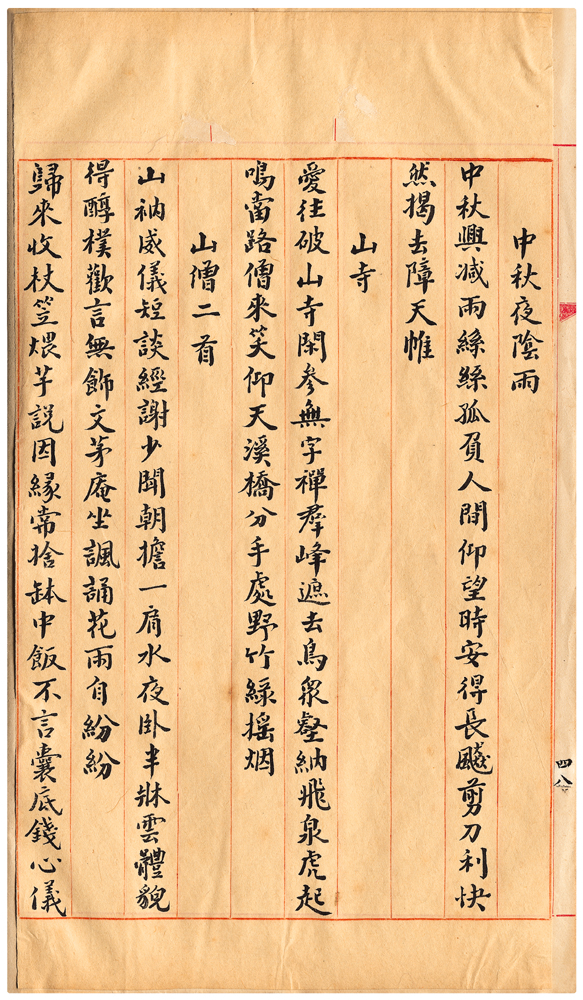 中秋夜陰雨
中秋興減雨絲絲孤負人間仰望時安得長飈剪刀利快
然揭去障天帷
山寺
愛往破山寺閑參無字禪群峰遮去鳥眾壑納飛泉虎起
鳴當路僧來笑仰天溪橋分手處野竹綠搖烟
山僧二首
山衲威儀短談經謝少聞朝擔一肩水夜卧半牀雲體貌
得醇樸歡言無飾文茅庵坐諷誦花雨自紛紛
歸來收杖笠煨芋説因緣常捨缽中飯不言囊底錢心儀
四八